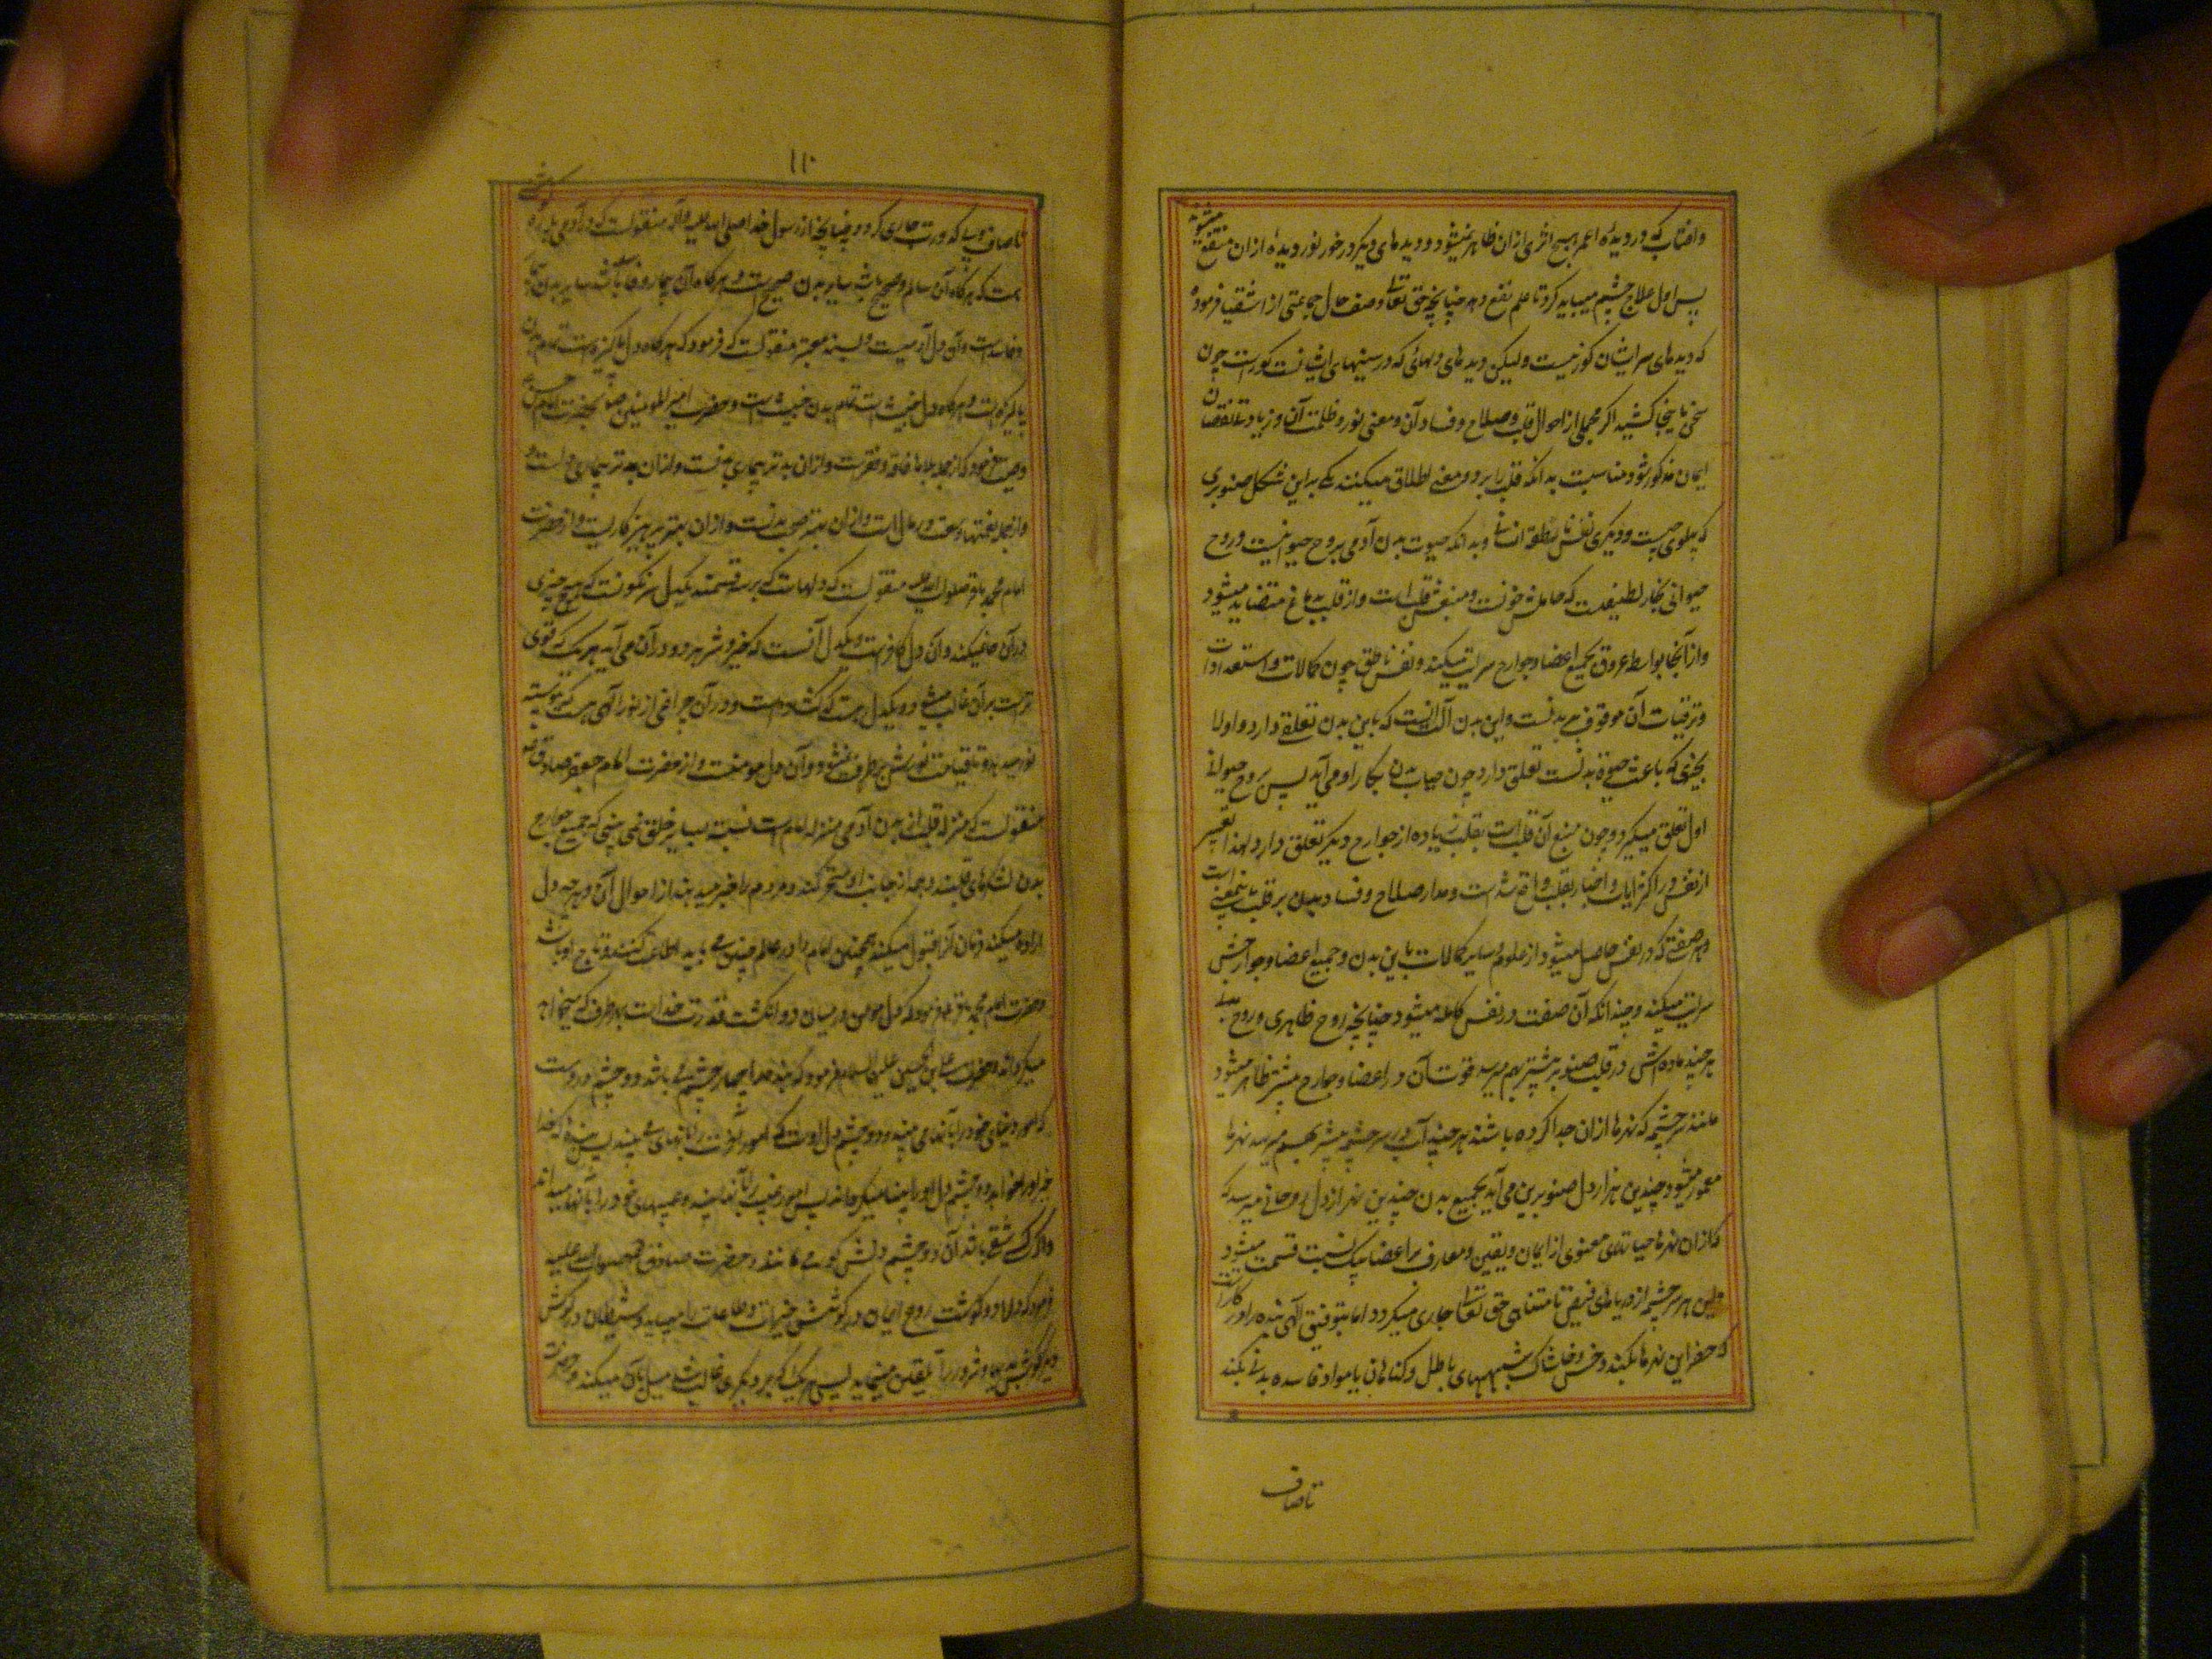 و آفتاب که در دیدهٔ اعمی هیچ اثری ازان ظاهر نمیشود و دیدهای دیگر در خور نور دیدهٔ ازان منتفع میشوند
پس اول علاج چشم میباید کرد تا علم نفع دهد چنانچه حق تعالی وصف حال جماعتی از اشقیا فرموده
که دیدهای سر ایشان کور نیست ولیکن دیدهای دلهائی که در سینهای ایشانست کور است چون
سخن باینجا کشید اگر مجملی از احوال قلب و صلاح و فساد آن و معنی نور و ظلمت آن و زیادتی و نقصان
ایمان مذکور شود مناسبست بدانکه قلب را بر دو معنی اطلاق میکنند یکی براین شکل صنوبری
که پهلوی چپست و دیگری نفس ناطقه انسانی و بدانکه حیوة بدن آدمی بروح حیوانیست و روح
حیوانی بخار لطیفیست که حاملش خونست و منبعش قلب است و از قلب بدماغ متصاعد میشود
و از آنجا بواسطه عروق بجمیع اعضا و جوارح سرایت میکند و نفس ناطق چون کمالات و استعدادات
و ترقیات آن موقوف ببدنست و این بدن آلت آنست که باین بدن تعلق دارد و اولا
بچیزی که باعث حیوة بدنست تعلق دارد چون حیات بدن بکار او می آید پس بروح حیوانی
اول تعلق میگیرد و چون منبع آن قلب است بقلب زیاده از جوارح دیگر تعلق دارد لهذا تعبیر
از نفس در اکثر آیات و اخبار بقلب واقع شده است و مدار صلاح و فساد بدن بر قلب باین معنی است
و هر صفتی که در نفس حاصل میشود از علوم و سایر کمالات باین بدن و جمیع اعضا و جوارحش
سرایت میکند و چندانکه آن صفت در نفس کامله میشود چنانچه روح ظاهری و روح بدنی
هر چند ماده‌اش در قلب صنوبر بیشتر بهم میرسد قوت آن در اعضا و جوارح بیشتر ظاهر میشود
مانند سرچشمه که نهرها ازان جدا کرده باشند هر چند آب در سرچشمه بیشتر بهم میرسد نهرها
معمورتر میشود چندین هزار دل صنوبرین می آید بجمیع بدن چندین نهر از دل روحانی میرسد که
که ازان نهرها حیاتهای معنوی از ایمان و یقین و معارف بر اعضا بیک نسبت قسمت میشود
و این هر سرچشمه از دریاهای فیض نامتناهی حق تعالی جاری میگردد اما بتوفیق الهی بنده را در کار است
که حفر این نهرها بکند و خس و خاشاک شبههای باطل و گناهان با مواد فاسده بدنی بکند
تا صاف
۱۱۰
تا صاف و بی کدورت جاری گردد و چنانچه از رسول خدا صلی الله علیه وآله منقولست که در آدمی پاره گوشتی
هست که هرگاه آن سالم و صحیح باشد سایر بدن صحیح است و هرگاه آن بیمار و فاسد باشد سایر بدن بیمار
و فاسد است و آن دل آدمیست و بسند معتبر منقولست که فرمود که هرگاه دل پاکیزه است تمام بدن
پاکیزه است و هرگاه دل خبیث است تمام بدن خبیث است و حضرت امیر المؤمنین بحضرت امام حسن
وصیت فرمود که از جمله بلاها فاقه و فقرست و ازان بدتر بیماری بدنست و ازان بدتر بیماری دلست
و از جمله نعمتها وسعت در مال است و ازان بهتر صحت بدنست و ازان بهتر پرهیزکاریست و از حضرت
امام محمد باقر صلوات الله علیه منقولست که دلها است که بر سه قسمند یکدل سرنگونست که هیچ چیزی
در آن جا نمیکند و آن دل کافرست و یکدل آنست که خیر و شر هر دو در آن می آید هر یک که قوی
ترست بر آن غالب میشود و یکدل هست که گشاده است و در آن چراغی از نور الهی هست که پیوسته
نور میدهد و تا قیامت نورش برطرف نمیشود و آن دل مومنست و از حضرت امام جعفر صادق
منقولست که منزله قلب از بدن آدمی منزله امام است نسبت بسایر خلق نمی بینی که جمیع جوارح
بدن لشکرهای قلبند و همه از جانب او متحرکند و مردم را خبر میدهند از احوال آن و هر چه دل
اراده میکند فرمان آنرا قبول میکنند همچنین امام را در عالم چنین می باید اطاعت کنند و تابع او باشند
و حضرت امام محمد باقر فرمود که دل مومن در میان دو انگشت قدرت خداست بهر طرف که میخواهد
میگرداند و حضرت علی بن الحسین علیه السلام فرمود که بنده را چهار چشم می باشد دو چشم در سرست
که امور دنیای خود را بآنها می بیند و دو چشم در دل اوست که امور آخرت را بآنها می بیند پس بنده را که خدا
خیر او را خواهد دو چشم دل او را بینا میگرداند پس امور غیب را بآنها می بیند و عیبهای خود را بآنها میداند
و اگر کسی شقی باشد آن دو چشم دلش کور می ماند و حضرت صادق صلوات الله علیه
فرمود که دل را دو گوشست روح ایمان در گوشش خیرات و طاعات را میدمد و شیطان در گوش
دیگرش بدیها و شرور را تلقین مینماید پس هر یک که بر دیگری غالب شد میل بآن میکند و حضرت